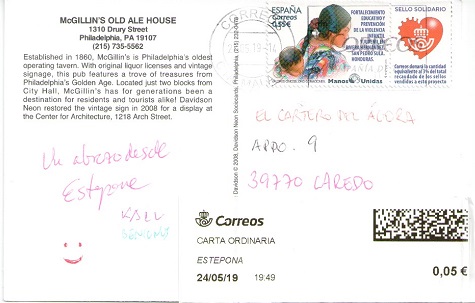 McGILLIN'S OLD ALE HOUSE
1310 Drury Street
Philadelphia, PA 19107
(215) 735-5562
Established in 1860, McGillin's is Philadelphia's oldest
operating tavern. With original liquor licenses and vintage
signage, this pub features a trove of treasures from
Philadelphia's Golden Age. Located just two blocks from
City Hall, McGillin's has for generations been a
destination for residents and tourists alike! Davidson
Neon restored the vintage sign in 2008 for a display at
the Center for Architecture, 1218 Arch Street.
Un abrazo desde
Estepona
Davidson © 2008, Davidson Neon Postcards, Philadelphia, (215) 232-0478
CORREOS
ESPAÑA
Correos
0,55€
FORTALECIMIENTO
EDUCATIVO Y
PREVENCIÓN
DE LA VIOLENCIA
INFANTIL Y JUVENIL EN
SAN PEDRO SULA.
HONDURAS.
Manos Unidas
SELLO SOLIDARIO
Correos donará la cantidad
equivalente al 3% del total
recaudado de los sellos
vendidos a este proyecto
EL CARTERO DEL ÁGORA
APDO. 9
39770 LAREDO
Correos
CARTA ORDINARIA
ESTEPONA
24/05/19 19:49
0,05 €